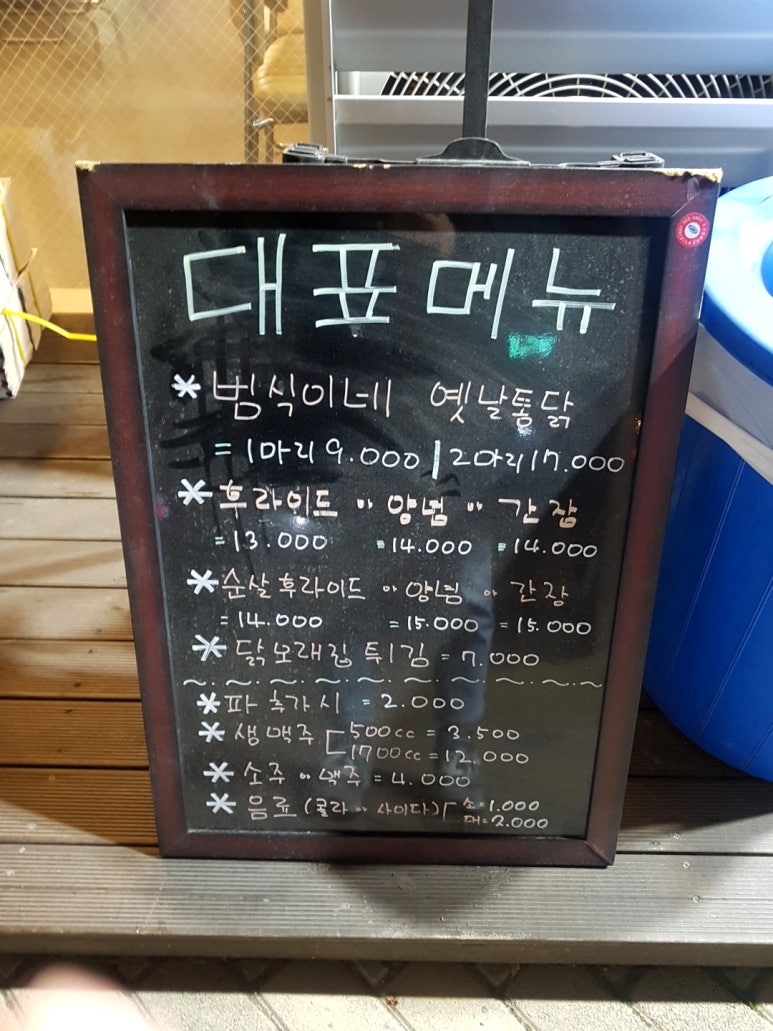 대표메뉴
* 범식이네 옛날통닭
= 1마리 9.000 | 2마리 17.000
* 후라이드 " 양념 " 간장
= 13.000 = 14.000 = 14.000
* 순살후라이드 " 양념 " 간장
= 14.000 = 15.000 = 15.000
* 닭모래집 튀김 = 7.000
* 파 추가시 = 2.000
* 생맥주 [ 500cc = 3.500
1700cc = 12.000
* 소주 " 맥주 = 4.000
* 음료 (콜라 " 사이다) [ 소 = 1.000
대 = 2.000